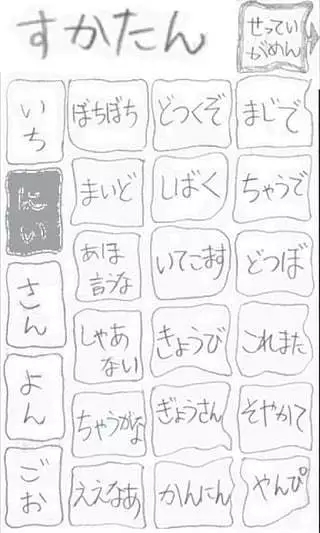 すかたん
せってい
がめん
いち
にい
さん
よん
ごお
ぼちぼち
どつくぞ
まじで
まいど
しばく
ちゃうで
あほ
言うな
いてこます
どつぼ
しゃあ
ない
きょうび
これまた
ちゃうがな
ぎょうさん
そやかて
ええなあ
かんにん
やんぴ